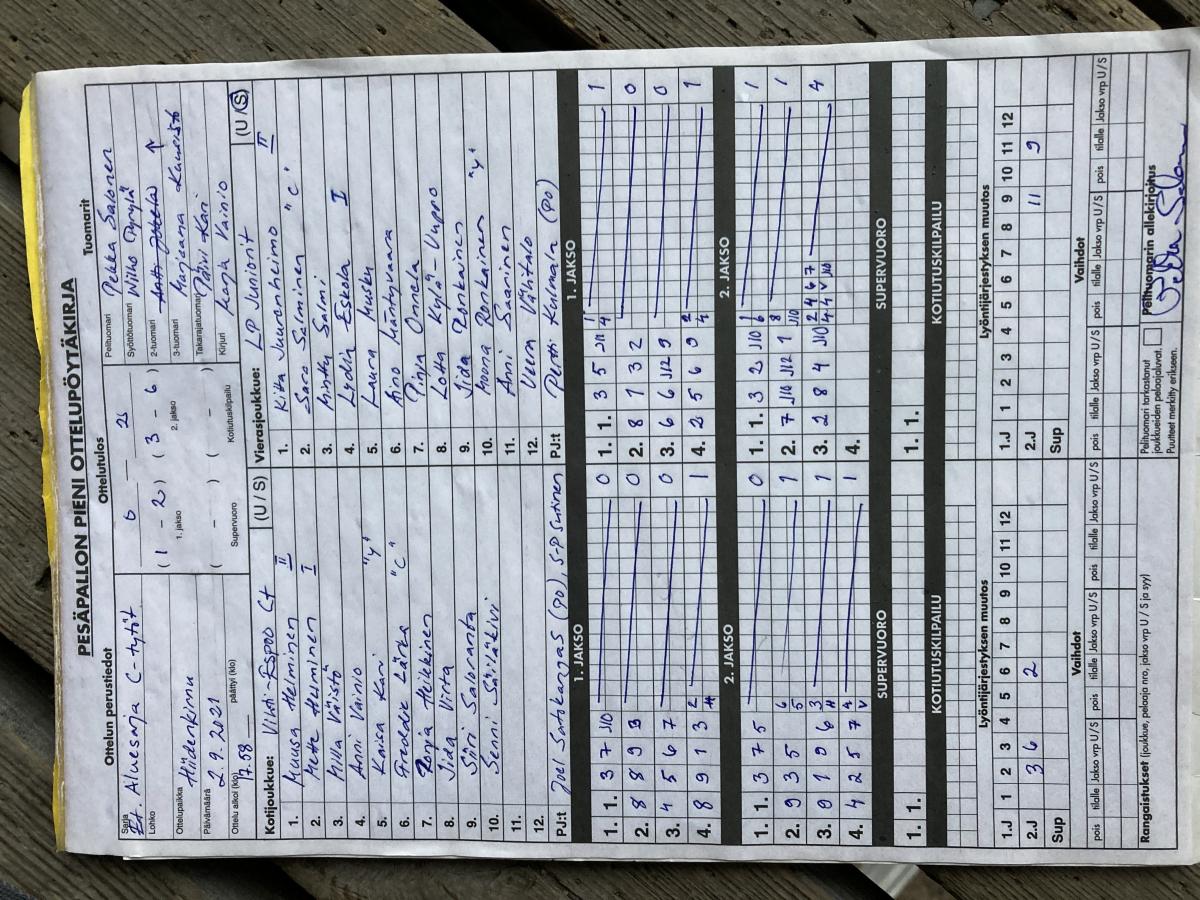 PESÄPALLON PIENI OTTELUPÖYTÄKIRJA
Ottelun perustiedot
Sarja
Aluesarja C-tytöt
Lohko
Ottelupaikka
Hiidenkinnu
Päivämäärä
2.9.2021
Ottelu alkoi (klo)
17.58
päättyi (klo)
Ottelutulos
( 1 - 2 ) ( 3 - 6 )
1. jakso
2. jakso
( - ) ( - )
Supervuoro
Kotiutuskilpailu
Tuomarit
Pelituomari
Pekka Salonen
Syöttötuomari
Niko Pyrylä
2-tuomari
3-tuomari
Marjaana
Takarajatuomari
Päivi Kari
Kirjuri
Kanja Vainio
Kotijoukkue: Vihti-Espoo C+ (U / S)
1. Muusa Helminen II
2. Mette Helminen I
3. Milla Väistö
4. Anni Vainio
5. Kaisa Kari "y"
6. Lärka "C"
7. Ronja Heikkinen
8. Iida Virta
9. Siiri Saloranta
10. Senni Säiläkivi
11.
12.
PJ:t Joel Satokangas (PO), S-P Sutinen
Vierasjoukkue: LP Juniorit (U / S)
1. Kiita Juuranheimo II
2. Sara Salminen "C"
3. Minttu Sarmi
4. Lydia Eskola I
5. Laura
6. Aino Mäntyvaara
7. Pinja Onnela
8. Lotta Kylä-Uuppo
9. Iida Ronkainen
10. Noora Ronkainen "y"
11. Anni Saarinen
12. Veera Vähätalo
PJ:t Pertti (PO)
1. JAKSO
1. 1. 3 7 J10 0
2. 8 8 9 3 0
3. 4 5 6 7 0
4. 8 9 1 3 2 1
1. JAKSO
1. 1. 3 5 J11 4 1
2. 8 1 3 2 0
3. 6 6 J12 9 0
4. 2 5 6 9 1
2. JAKSO
1. 1. 3 7 5 0
2. 9 3 5 6 5 1
3. 9 1 9 6 3 1
4. 4 2 5 7 4 1
2. JAKSO
1. 1. 3 2 J10 1 6 1
2. 7 J10 J12 1 8 J10 1
3. 2 8 4 J10 2 4 6 7 4
4.
SUPERVUORO
1. 1.
SUPERVUORO
1. 1.
KOTIUTUSKILPAILU
KOTIUTUSKILPAILU
Lyöntijärjestyksen muutos
1.J 1 2 3 4 5 6 7 8 9 10 11 12
2.J 3 6 2
Sup
Lyöntijärjestyksen muutos
1.J 1 2 3 4 5 6 7 8 9 10 11 12
2.J 11 9
Sup
Vaihdot
pois tilalle Jakso vrp U / S pois tilalle Jakso vrp U / S pois tilalle Jakso vrp U / S
Vaihdot
pois tilalle Jakso vrp U / S pois tilalle Jakso vrp U / S pois tilalle Jakso vrp U / S
Rangaistukset (joukkue, pelaaja nro, jakso vrp U / S ja syy)
Pelituomari tarkastanut
joukkueiden pelaajaluvat.
Puutteet merkitty erikseen.
Pelituomarin allekirjoitus